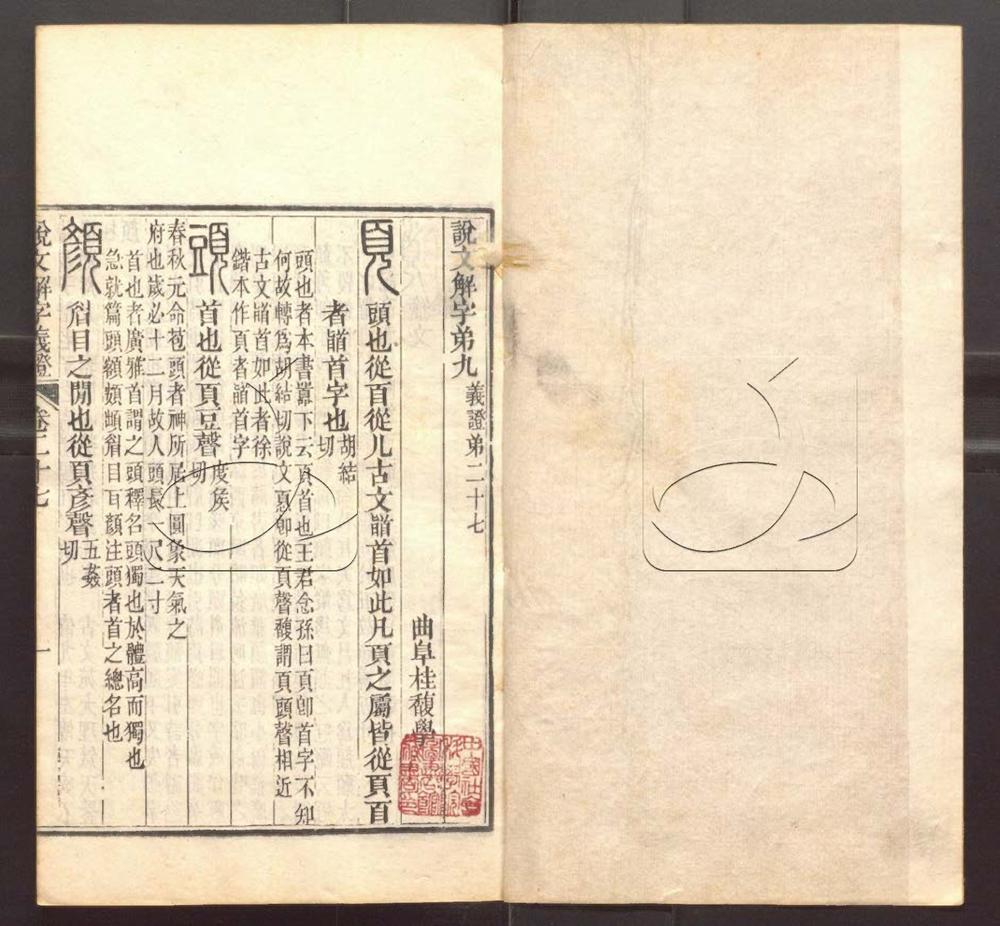 說文解字弟九 義證弟二十七
曲阜桂馥學
頁 頭也從𦣻從儿古文䭫首如此凡頁之屬皆從頁𦣻
者䭫首字也 胡結切
頭也者本書囂下云頁首也王君念孫曰頁卽首字不知
何故轉爲胡結切說文𩑋卽從頁聲馥謂頁頭聲相近
古文䭫首如此者徐
鍇本作頁者䭫首字
頭 首也從頁豆聲 度矦切
春秋元命苞頭者神所居上圓象天氣之
府也歲必十二月故人頭長一尺二寸
首也者廣雅首謂之頭釋名頭獨也於體高而獨也
急就篇頭頟頞䪼眉目耳顏注頭者首之總名也
顏 眉目之閒也從頁彥聲 五姦切
說文解字義證 卷二十七 一